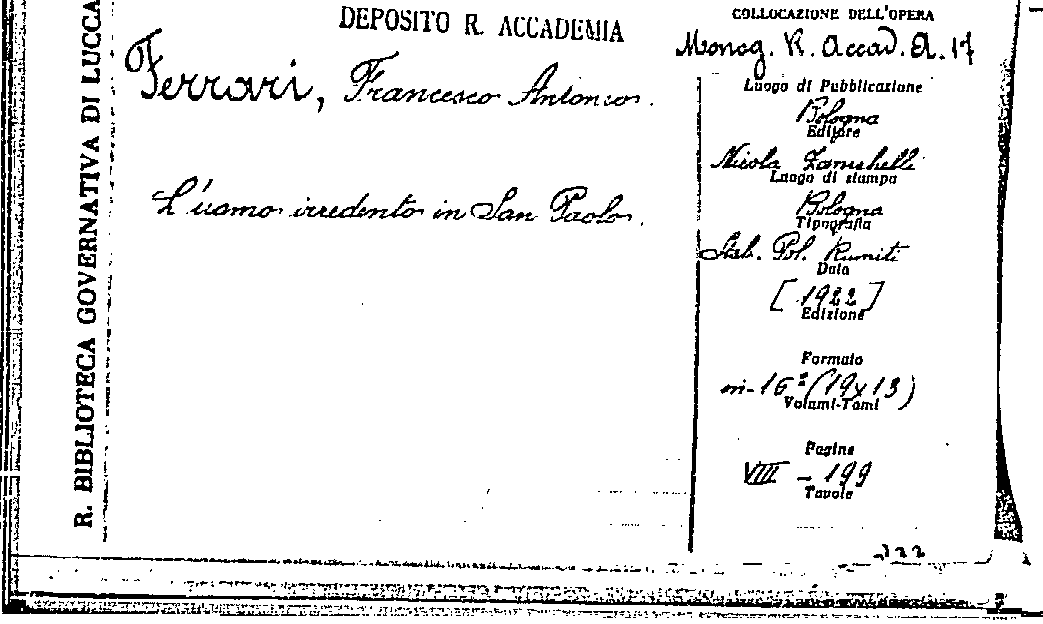 R. BIBLIOTECA GOVERNATIVA DI LUCCA
DEPOSITO R. ACCADEMIA
Ferrari, Francesco Antonio.
L'uomo irredento in San Paolo.
COLLOCAZIONE DELL'OPERA
Monog. R. Accad. A. 17
Luogo di Pubblicazione
Bologna
Editore
Nicola Zanichelli
Luogo di stampa
Bologna
Tipografia
Stab. Pol. Riuniti
Data
[1922]
Edizione
Formato
in-16º (19x13)
Volumi-Tomi
Pagine
VIII - 199
Tavole